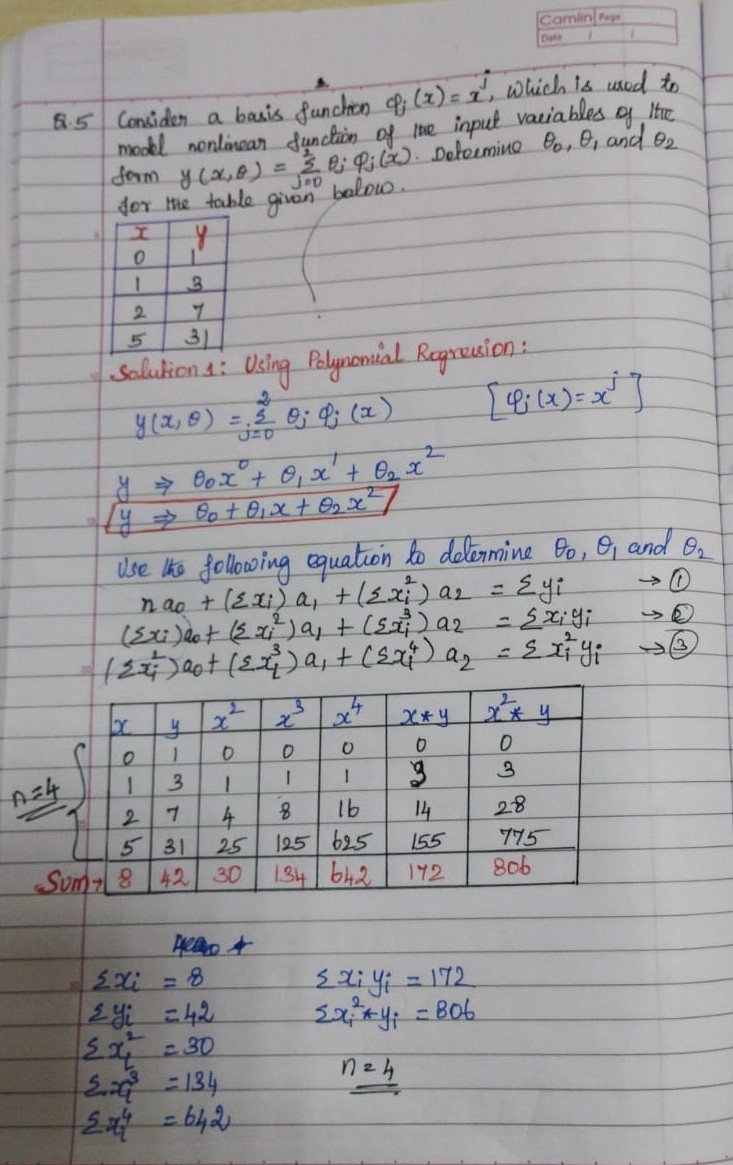 Camlin Page
Date / /
Q.5 Consider a basis function φj (x) = x^j, which is used to
model nonlinear function of the input variables of the
form y(x,θ) = Σ_{j=0}^{2} θj φj(x). Determine θ0, θ1 and θ2
for the table given below.
x y
0 1
1 3
2 7
5 31
Solution 1: Using Polynomial Regression:
y(x, θ) = Σ_{j=0}^{2} θj φj (x) [φj (x) = x^j]
y ⇒ θ0x^0 + θ1x^1 + θ2x^2
y ⇒ θ0 + θ1x + θ2x^2
Use the following equation to determine θ0, θ1 and θ2
na0 + (Σxi) a1 + (Σxi^2) a2 = Σyi → ①
(Σxi)a0 + (Σxi^2)a1 + (Σxi^3)a2 = Σxiyi → ②
(Σxi^2)a0 + (Σxi^3)a1 + (Σxi^4) a2 = Σxi^2yi → ③
x y x^2 x^3 x^4 x*y x^2 * y
0 1 0 0 0 0 0
1 3 1 1 1 3 3
n=4
2 7 4 8 16 14 28
5 31 25 125 625 155 775
Sum→ 8 42 30 134 642 172 806
Σxi = 8 Σxiyi = 172
Σyi = 42 Σxi^2*yi = 806
Σxi^2 = 30
n = 4
Σxi^3 = 134
Σxi^4 = 642